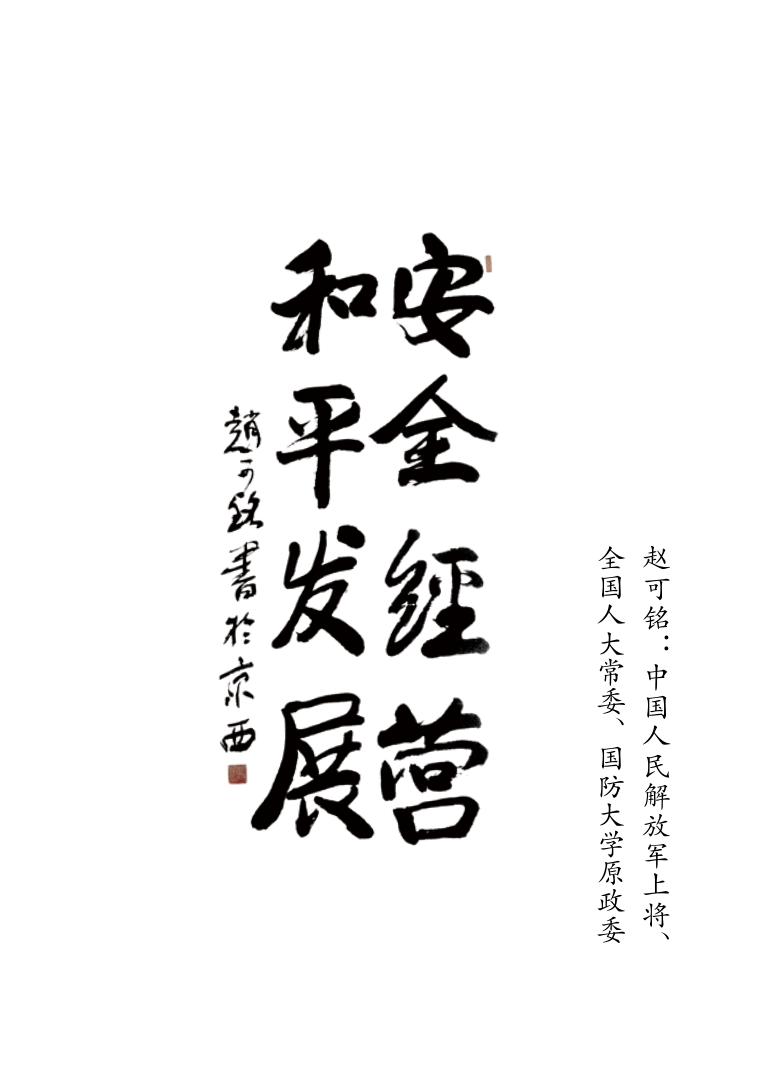 赵可铭：中国人民解放军上将、
全国人大常委、国防大学原政委
安全經营
和平发展
趙可铭書於京西